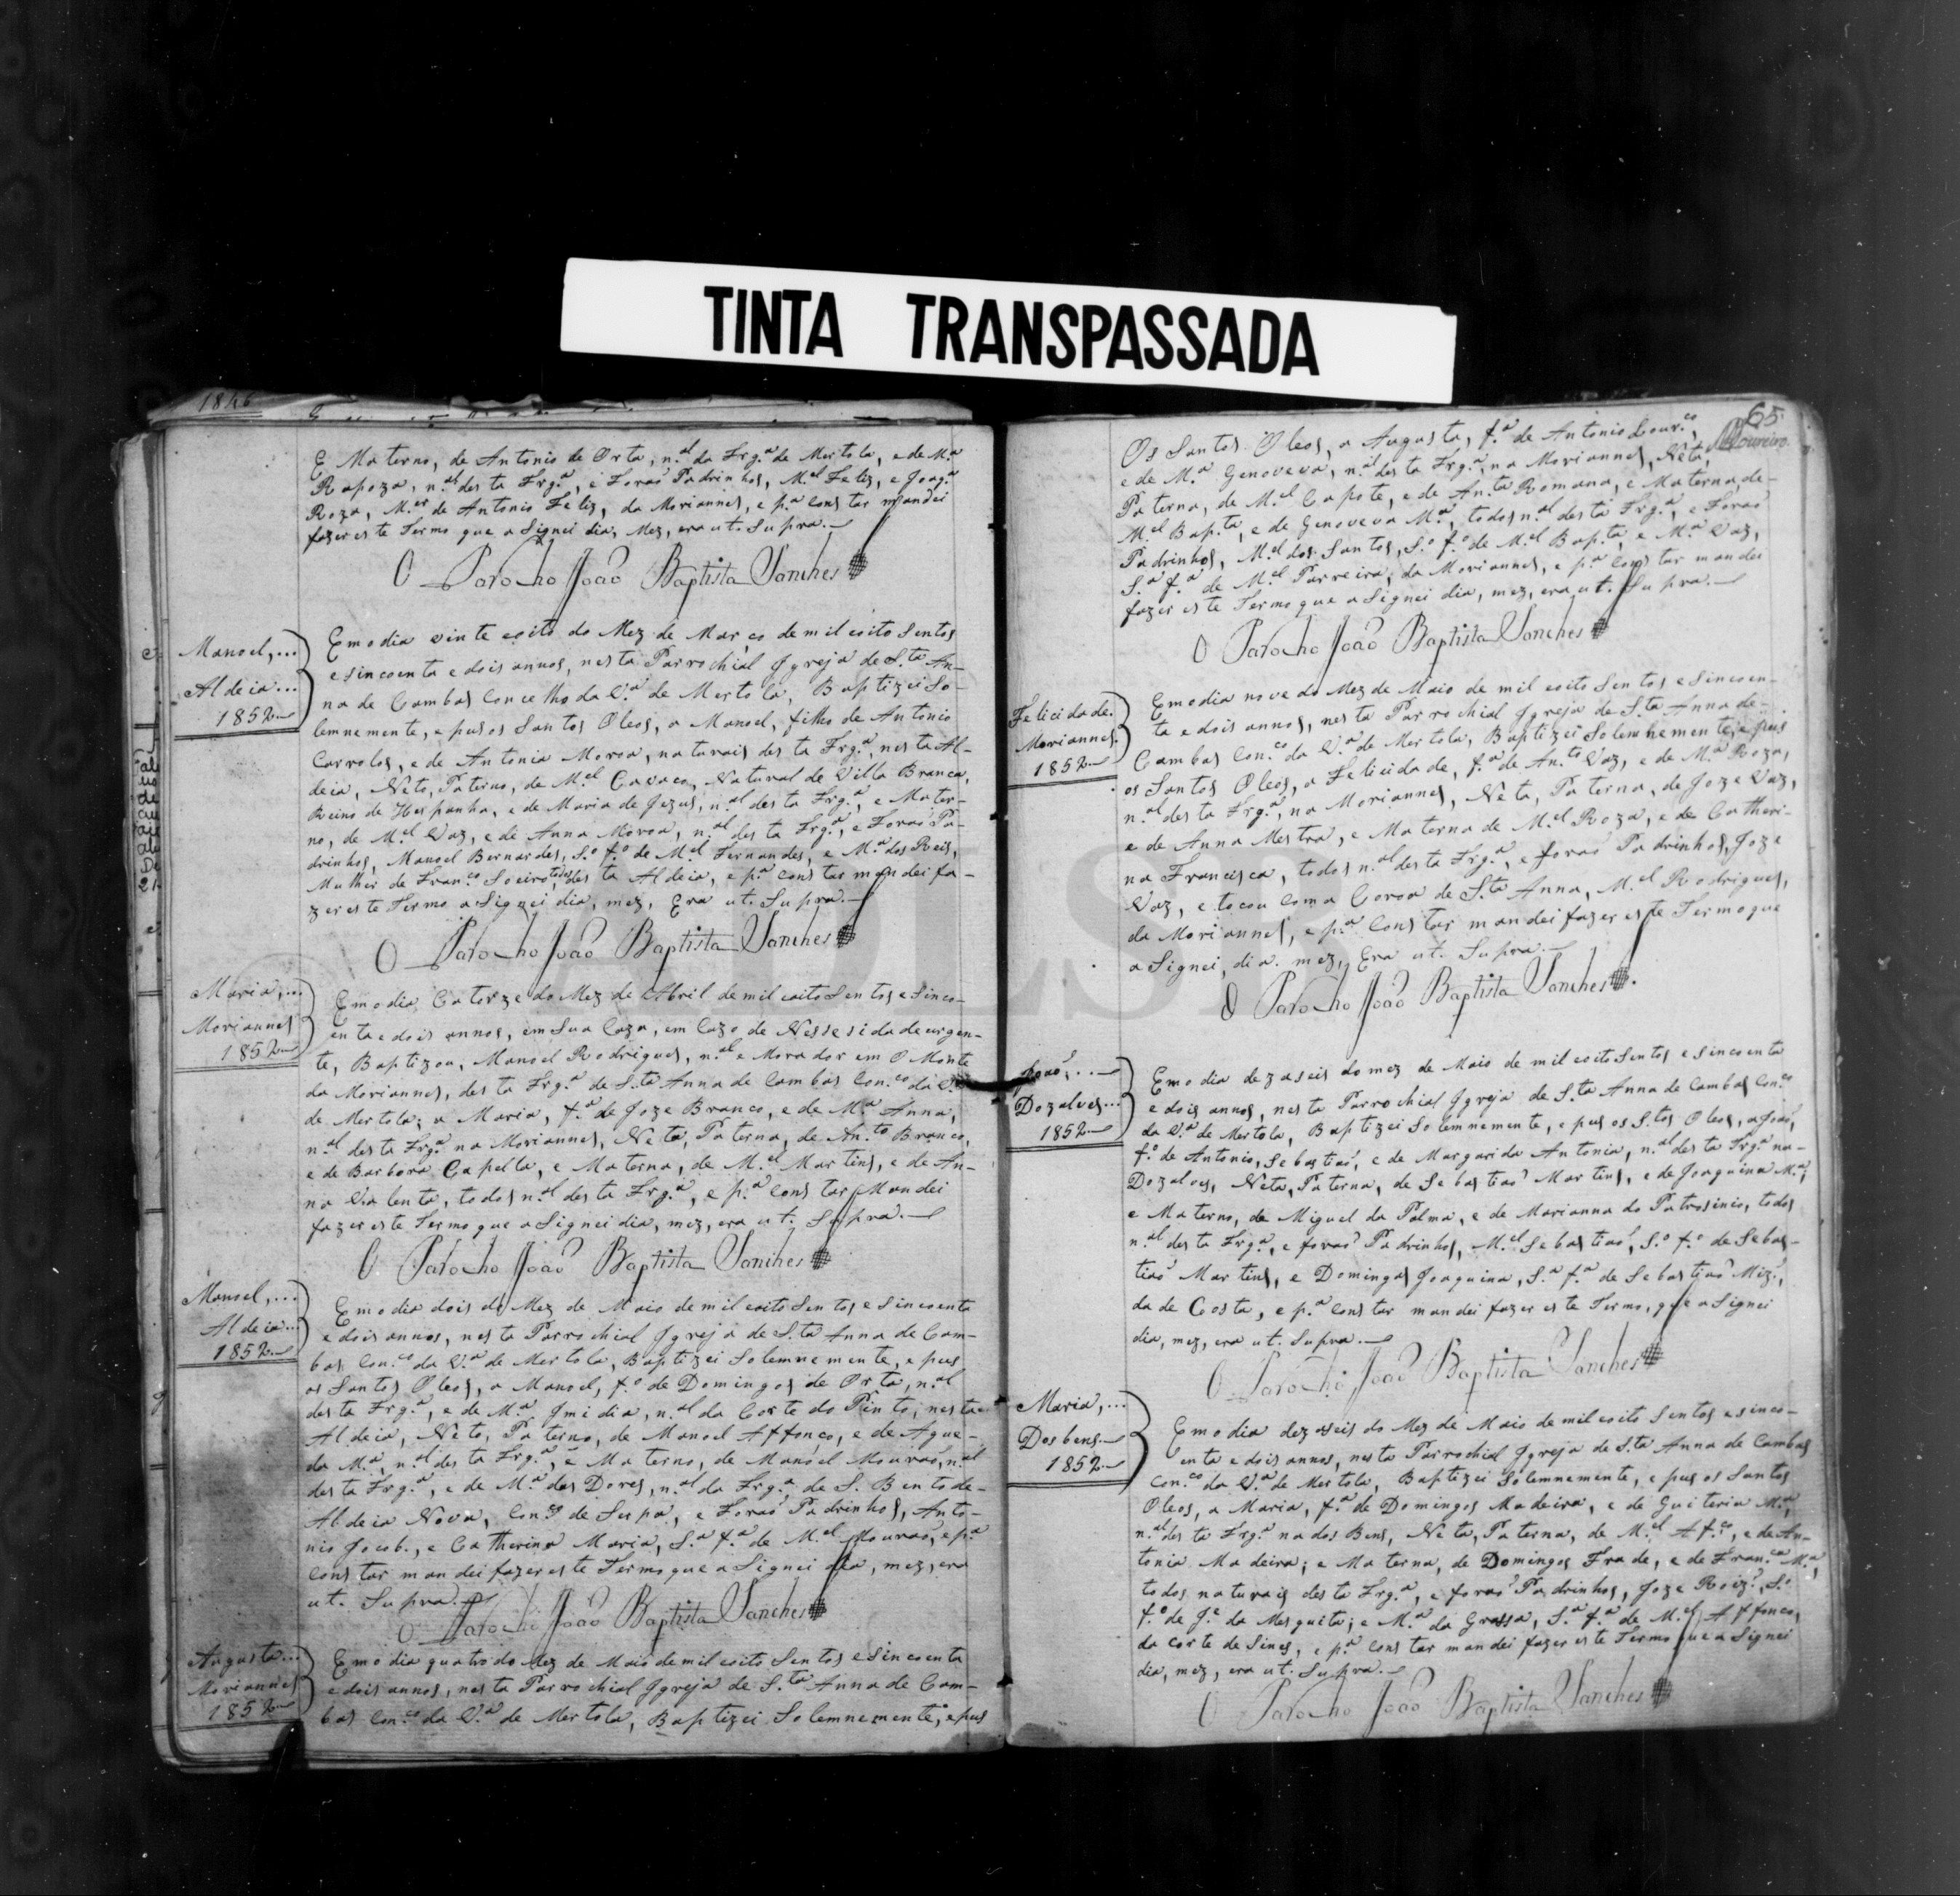 TINTA TRANSPASSADA
1846
E Materno, de Antonio de Orta, n.al da Frg.a de Mertola, e de M.a
Rapoza, n.al desta Frg.a, e Foraõ Padrinhos, M.el Feliz, e Joaq.a
Roza, M.er de Antonio Feliz, da Moriannes, e p.a constar mandei
fazer este Termo que asignei dia, Mez, era ut. Supra.
O Parocho João Baptista Sanches
Manoel, ...
Aldeia ...
1852
Em o dia vinte eoito do Mez de Março de mil eoito Sentos
esincoenta e dois annos, nesta Parrochial Ygreja de S.ta An-
na de Cambas Concelho da V.a de Mertola, Baptizei So-
lemnemente, e pus os Santos Oleos, a Manoel, filho de Antonio
Carrolos, e de Antonia Moroa, naturais desta Frg.a, nesta Al-
deia, Neto, Paterno, de M.el Cavaco, Natural de Villa Branca,
Reino de Herpanha, e de Maria de Jezus, n.al desta Frg.a, e Mater-
no, de M.el Vaz, e de Anna Moroa, n.al desta Frg.a, e Foraõ Pa-
drinhos, Manoel Bernardes, S.o f.o de M.el Fernandes, e M.a dos Reis,
Mulher de Fran.co Soeiro todos desta Aldeia, e p.a constar mandei fa-
zer este Termo asignei dia, mez, Era ut. Supra.
O Parocho João Baptista Sanches
Maria, ...
Moriannes
1852
Em o dia Catorze do Mez de Abril de mil eoito Sentos e Sinco-
enta e dois annos, em Sua Caza, em Cazo de Nessesidade urgen-
te, Baptizou, Manoel Rodrigues, n.al e Morador em O Monte
da Moriannes, desta Frg.a de S.ta Anna de Cambas Con.co da V.a
de Mertola; a Maria, f.a de Joze Branco, e de M.a Anna,
n.al desta Frg.a na Moriannes, Neta, Paterna, de An.to Branco,
e de Barbora Capella, e Materna, de M.el Martins, e de An-
na Valenta, todos n.al desta Frg.a, e p.a constar Mandei
fazer este Termo que asignei dia, mez, era ut. Supra.
O Parocho João Baptista Sanches
Manoel, ...
Aldeia ...
1852
Em o dia dois do Mez de Maio de mil eoito Sentos e Sincoenta
e dois annos, nesta Parrochial Ygreja de S.ta Anna de Cam-
bas, Con.co da V.a de Mertola, Baptizei Solemnemente, e pus
os Santos Oleos, a Manoel, f.o de Domingos de Orta, n.al
desta Frg.a, e de M.a Jmidia, n.al da Corte do Pinto, nesta
Aldeia, Neto, Paterno, de Manoel Affonço, e de Ague-
da M.a, n.al desta Frg.a, e Materno, de Manoel Mouraõ, n.al
desta Frg.a, e de M.a das Dores, n.al da Frg.a de S. Bento de-
Aldeia Nova, Con.o de Serpa, e Foraõ Padrinhos, Anto-
nio Jacob., e Catherina Maria, S.a f.a de M.el Mouraõ, e p.a
constar mandei fazer este Termo que asignei dia, mez, era
ut. Supra.
O Parocho João Baptista Sanches
Augusta ...
Moriannes
1852
Em o dia quatro do Mez de Maio de mil eoito Sentos e Sincoenta
e dois annos, nesta Parrochial Ygreja de S.ta Anna de Cam-
bas Con.co da V.a de Mertola, Baptizei Solemnemente, e pus
65
Loureiro
Os Santos Oleos, a Augusta, f.a de Antonio Lour.co,
e de M.a Genoveva, n.al desta Frg.a, na Moriannes, Neta,
Paterna, de M.el Capote, e de An.ta Romana, e Materna, de-
M.el Bap.ta, e de Genoveva M.a, todos n.al desta Frg.a, e Foraõ
Padrinhos, M.el dos Santos, S.o f.o de M.el Bap.ta, e M.a Vaz,
S.a f.a de M.el Parreira, da Moriannes, e p.a constar mandei
fazer este Termo que asignei dia, mez, era ut. Supra.
O Parocho João Baptista Sanches
Felicidade.
Moriannes.
1852
Em o dia nove do Mez de Maio de mil eoito Sentos e Sincoen-
ta e dois annos, nesta Parrochial Ygreja de S.ta Anna de-
Cambas Con.co da V.a de Mertola, Baptizei Solemnemente, e pus
os Santos Oleos, a Felicidade, f.a de An.to Vaz, e de M.a Roza,
n.al desta Frg.a, na Moriannes, Neta, Paterna, de Joze Vaz,
e de Anna Mestra, e Materna de M.el Roza, e de Catheri-
na Francisca, todos n.al desta Frg.a, e foraõ Padrinhos, Joze
Vaz, e tocou com a Coroa de S.ta Anna, M.el Rodrigues,
da Moriannes, e p.a Constar mandei fazer este Termo que
asignei, dia. mez, Era ut. Supra.
O Parocho João Baptista Sanches
Joaõ, ...
Dozalves ...
1852
Em o dia dezaseis do mez de Maio de mil eoito Sentos e Sincoenta
e dois annos, nesta Parrochial Ygreja de S.ta Anna de Cambas Con.co
da V.a de Mertola, Baptizei Solemnemente, e pus os S.tos Oleos, a Joaõ,
f.o de Antonio, Sebastiaõ, e de Margarida Antonia, n.al desta Frg.a na-
Dozalves, Neta, Paterna, de Sebastiaõ Martins, e de Joaquina M.a,
e Materno, de Miguel da Palma, e de Marianna do Patrosinio, todos
n.al desta Frg.a, e foraõ Padrinhos, M.el Sebastiaõ, S.o f.o de Sebas-
tiaõ Martins, e Domingas Joaquina, S.a f.a de Sebastiaõ Miz.,
da de Costa, e p.a constar mandei fazer este Termo, que asignei
dia, mez, era ut. Supra.
O Parocho João Baptista Sanches
Maria, ...
Dosbens
1852
Em o dia dezaseis do Mez de Maio de mil eoito Sentos e sinco-
enta e dois annos, nesta Parrochial Ygreja de S.ta Anna de Cambas
Con.co da V.a de Mertola, Baptizei Solemnemente, e pus os Santos
Oleos, a Maria, f.a de Domingos Madeira, e de Guiteria M.a,
n.al desta Frg.a na dos Bens, Neta, Paterna, de M.el Af.co, e de An-
tonia Madeira; e Materna, de Domingos Frade, e de Fran.ca M.a,
todos naturais desta Frg.a, e foraõ Padrinhos, Joze Roiz., S.o
f.o de J.e da Mesquita; e M.a da Grassa, S.a f.a de M.el Affonco,
da corte de Sines, e p.a constar mandei fazer este Termo que asignei
dia, mez, era ut. Supra.
O Parocho João Baptista Sanches